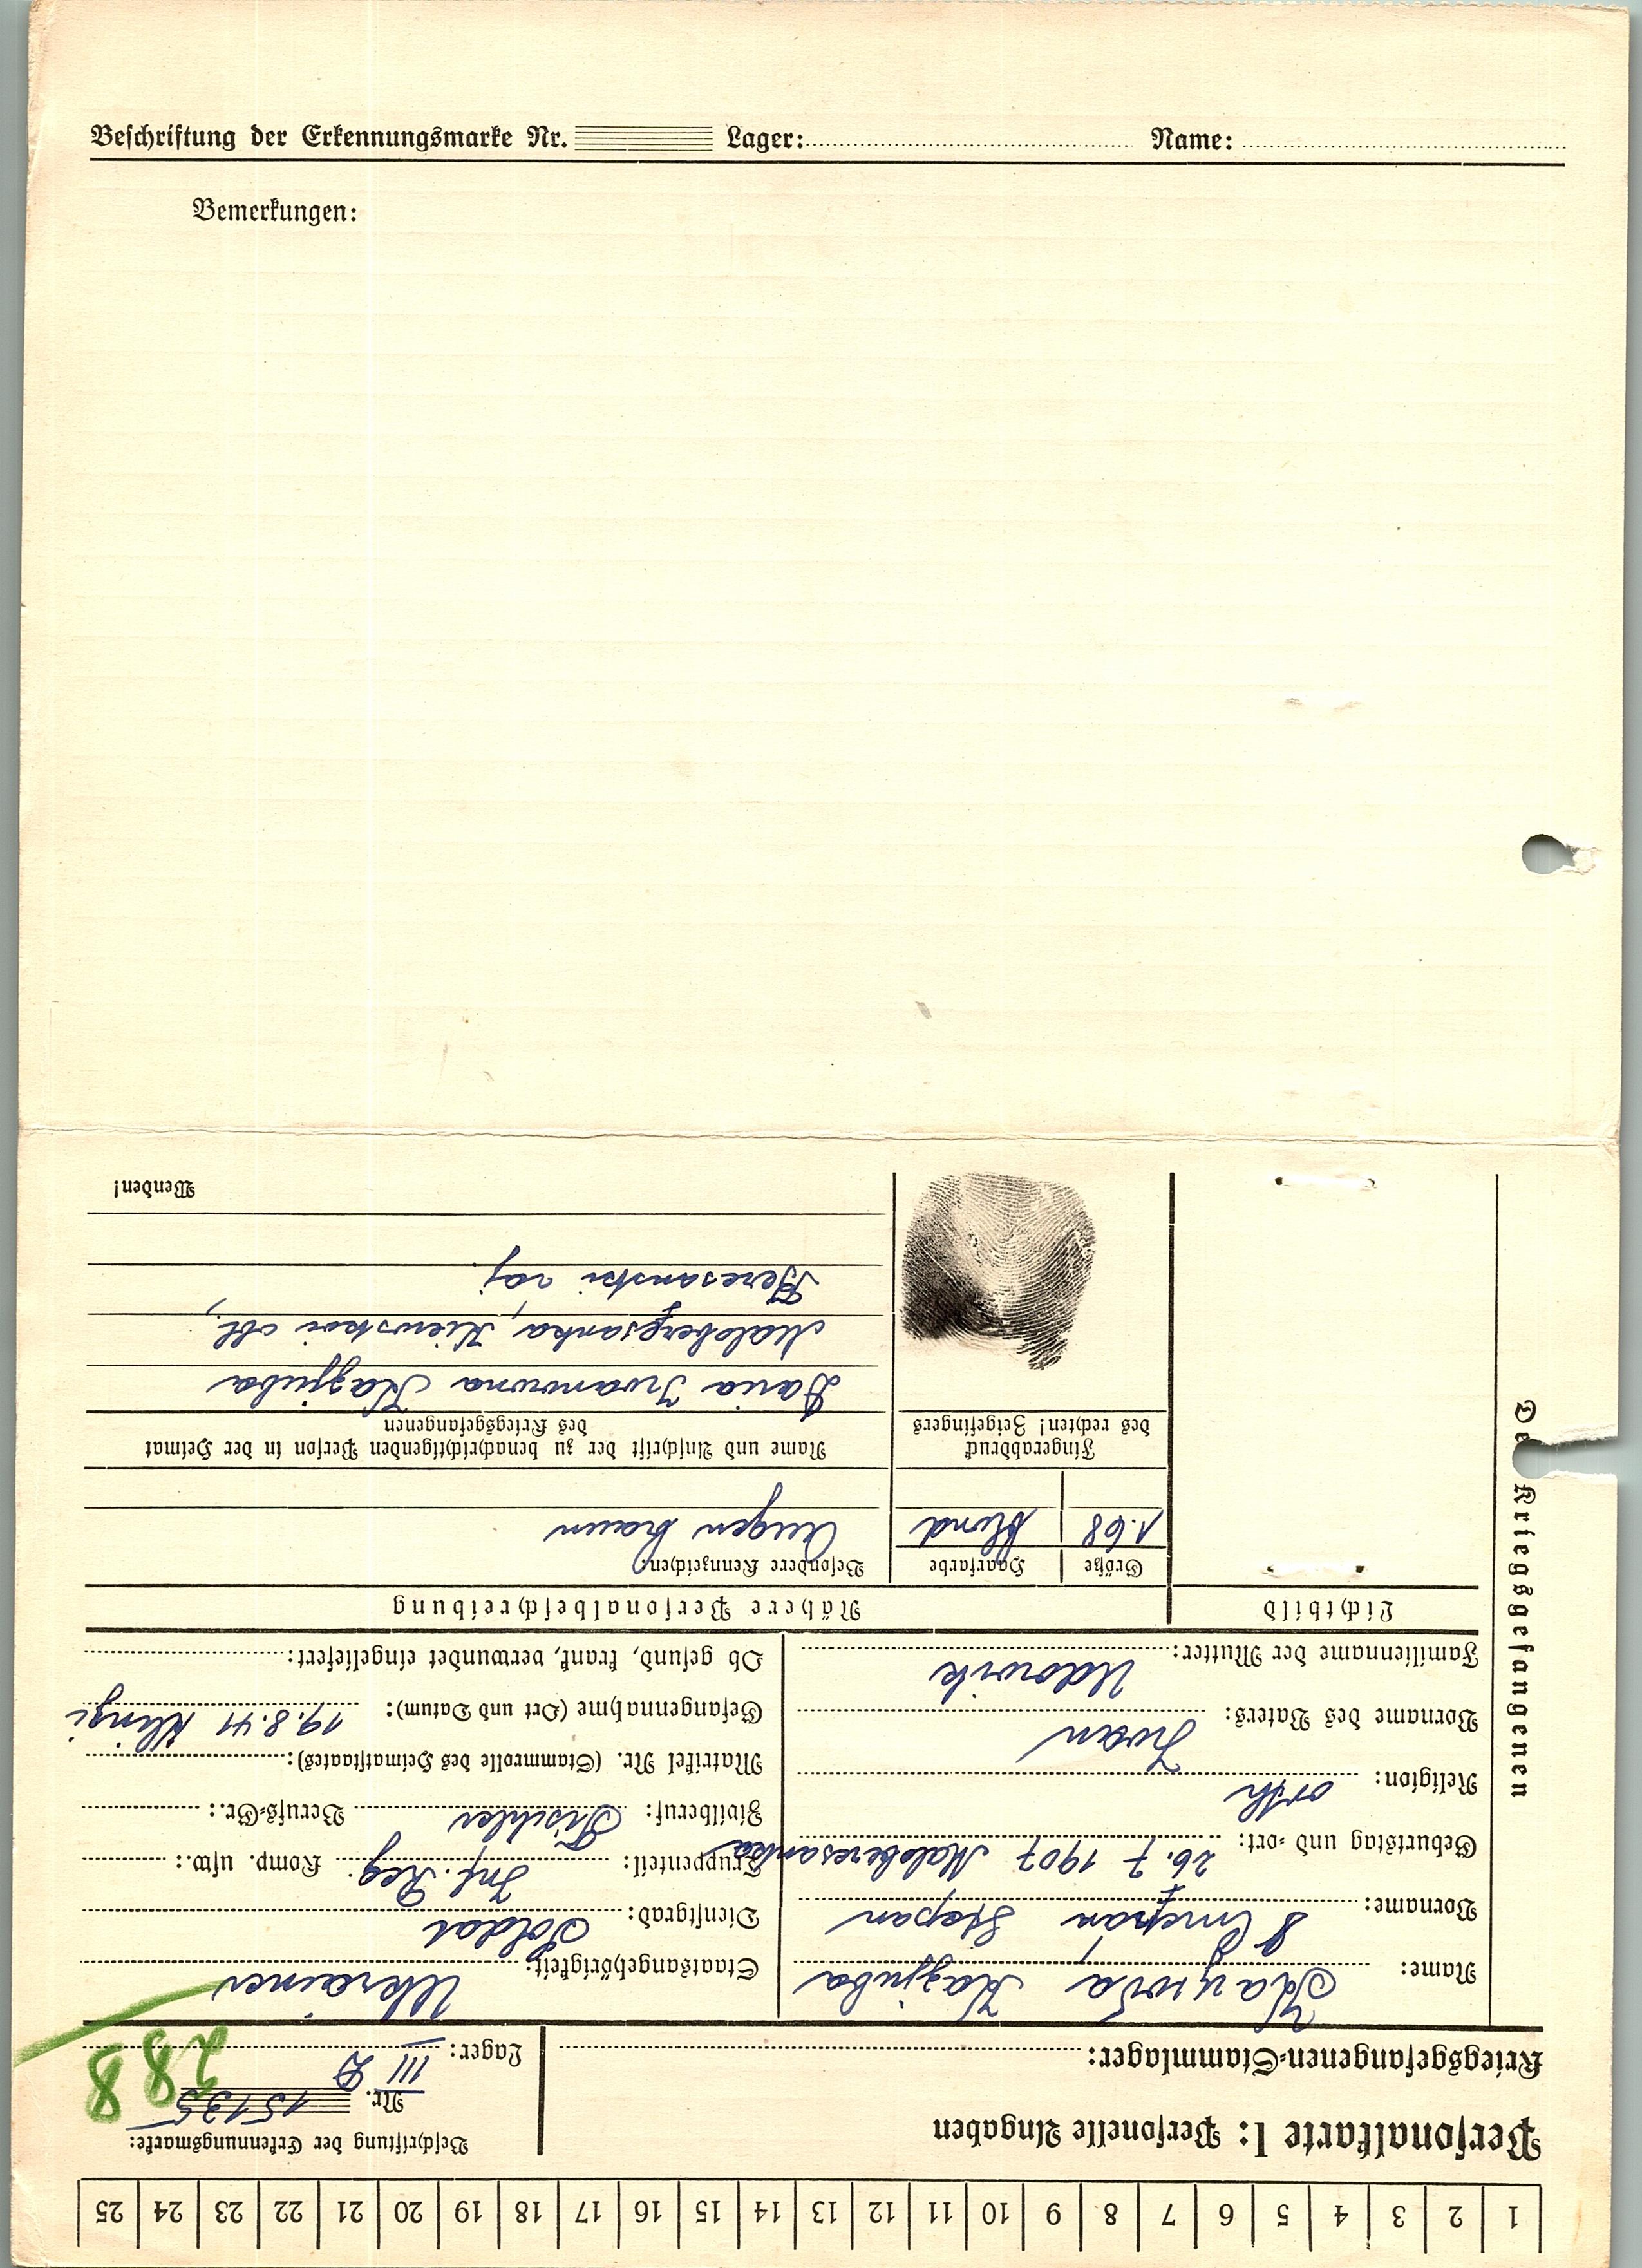 Beschriftung der Erkennungsmarke Nr. Lager: Name:
Bemerkungen:
1 2 3 4 5 6 7 8 9 10 11 12 13 14 15 16 17 18 19 20 21 22 23 24 25
Personalkarte I: Personelle Angaben
Beschriftung der Erkennungsmarke:
Nr. 15135
Kriegsgefangenen-Stammlager:
Lager: III D
288
Des Kriegsgefangenen
Name: Kazjuba
Vorname: Stepan
Geburtstag und -ort: 26. 7 1907 Maloberesanka
Religion: orth
Vorname des Vaters: Iwan
Familienname der Mutter: Udowik
Staatsangehörigkeit: Ukrainer
Dienstgrad: Soldat
Truppenteil: Inf. Reg. Komp. usw.:
Zivilberuf: Tischler Berufs-Gr.:
Matrikel Nr. (Stammrolle des Heimatstaates):
Gefangennahme (Ort und Datum): 19.8.41 Klinzi
Ob gesund, krank, verwundet eingeliefert:
Lichtbild
Nähere Personalbeschreibung
Größe Haarfarbe Besondere Kennzeichen:
1.68 blond Augen braun
Fingerabdruck
des rechten! Zeigefingers
Name und Anschrift der zu benachrichtigenden Person in der Heimat
des Kriegsgefangenen
Daria Iwanowna Kazjuba
Maloberesanka, Kiewskoi obl.,
Beresanski raj
Wenden!